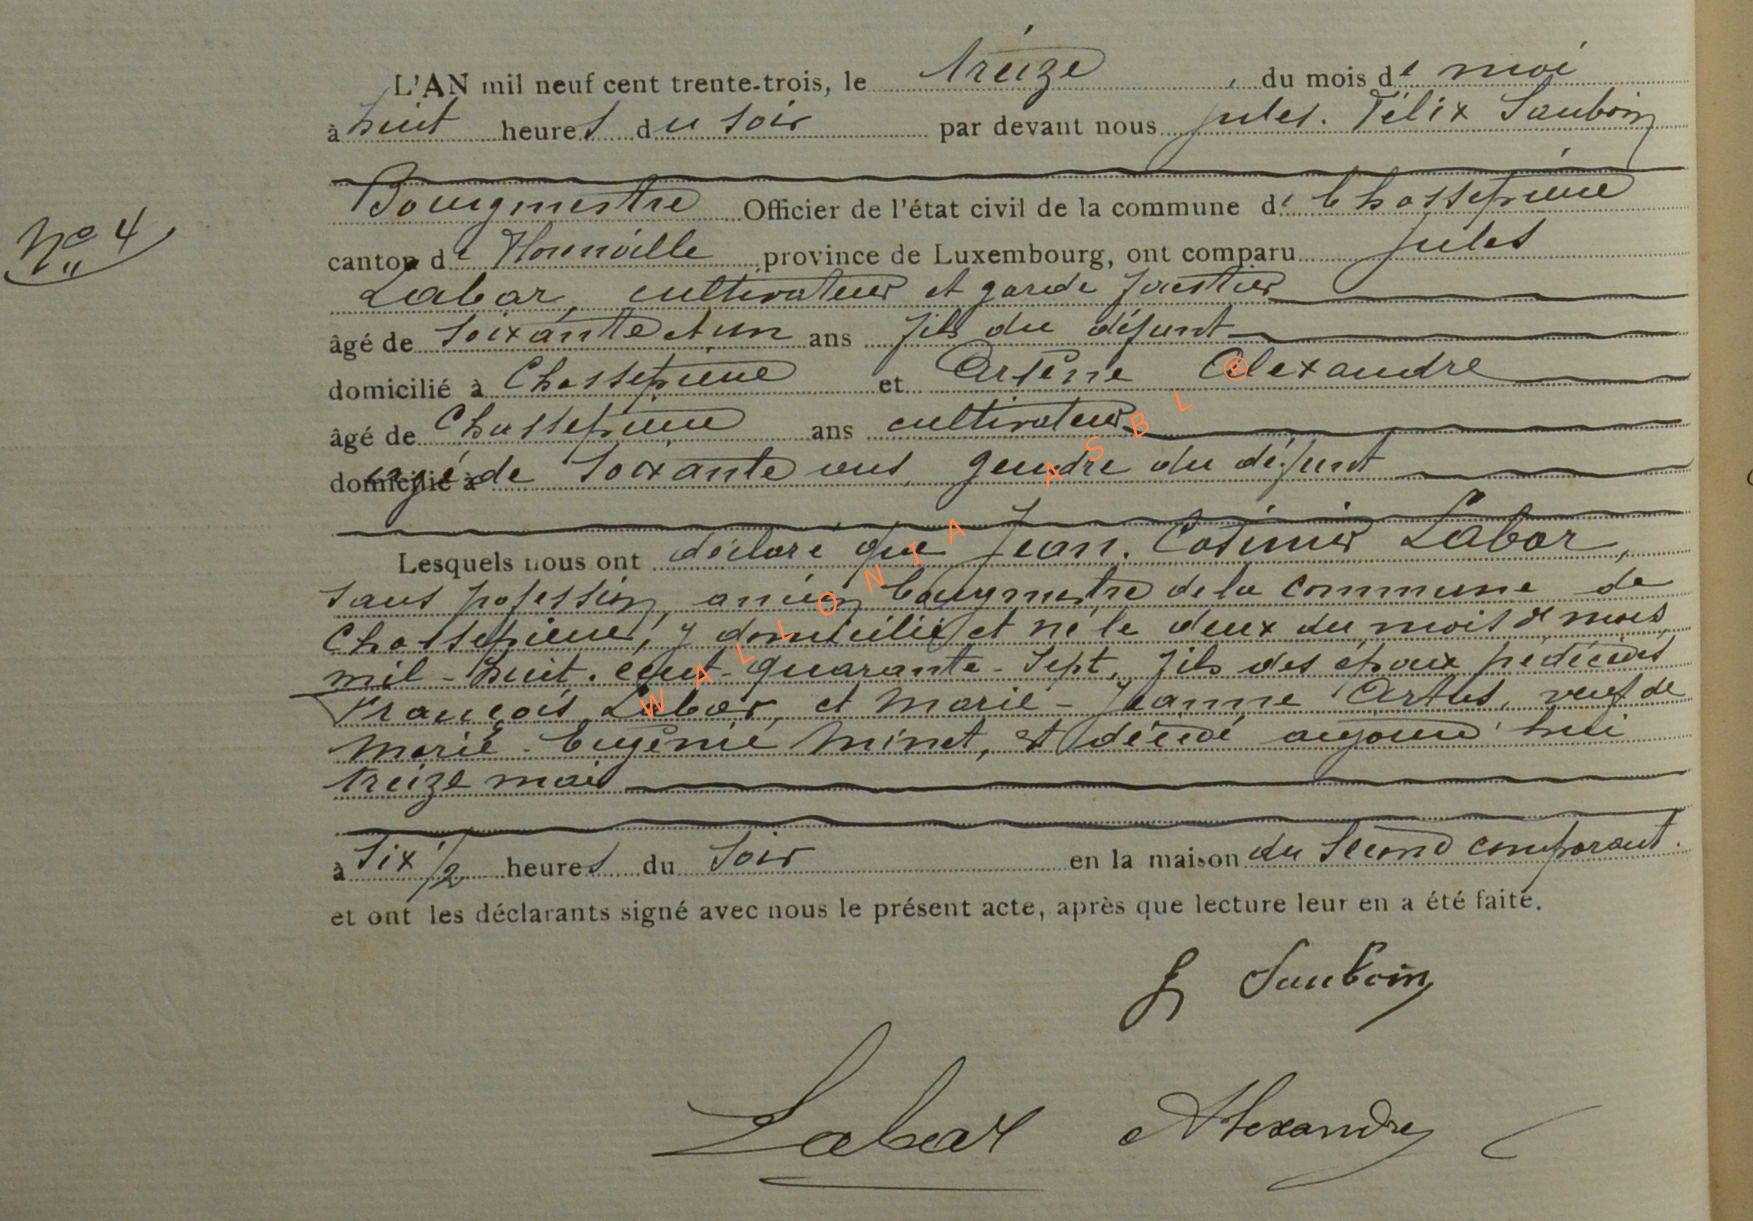 L'AN mil neuf cent trente-trois, le treize du mois de mai
à huit heures du soir par devant nous Jules. Félix Sauboin
Bourgmestre Officier de l'état civil de la commune de Chassepierre
N° 4
canton de Florenville province de Luxembourg, ont comparu Jules
Labar, cultivateur et garde forestier
âgé de soixante et un ans fils du défunt
domicilié à Chassepierre et Arsène Alexandre
âgé de Chassepierre ans cultivateur
domicilié à âgé de soixante ans, gendre du défunt
Lesquels nous ont déclaré que Jean. Casimir Labar,
sans profession, ancien bourgmestre de la commune de
Chassepierre, y domicilié et né le deux du mois de mars
mil-huit-cent-quarante-sept, fils des époux prédécédés
François Labar, et Marie-Jeanne Artus, veuf de
Marie-Eugénie Minet, est décédé aujourd'hui
treize mai
à six 1/2 heures du soir en la maison du second comparant.
et ont les déclarants signé avec nous le présent acte, après que lecture leur en a été faite.
Sauboin
Labar Alexandre
WALLONIA ASBL ©